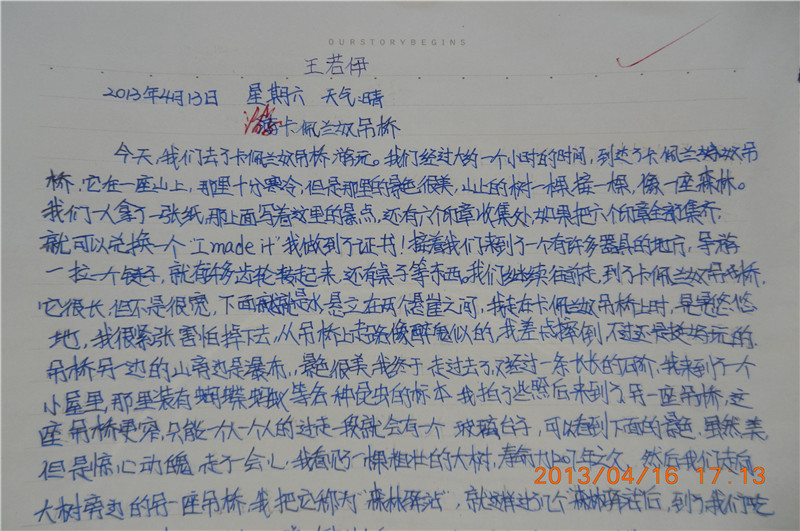 OURSTORYBEGINS
王若伊
2013年4月13日 星期六 天气:晴
游卡佩兰奴吊桥
今天,我们去了卡佩兰奴吊桥游玩。我们经过大约一个小时左的时间,到达了卡佩兰奴吊
桥,它在一座山上,那里十分寒冷,但是那里的景色很美,山上的树一棵接一棵,像一座森林。
我们一人拿了一张纸,那上面写着这里的景点,还有六个印章收集处,如果把六个印章全部集齐,
就可以兑换一个"I made it"我做到了证书!接着我们来到了一个有许多器具的地方,导游
一拉一个键子,就有许多齿轮转起来,还有桌子等东西。我们继续往前走,到了卡佩兰奴吊桥,
它很长,但不是很宽,下面就是水,悬立在两个悬崖之间,我走在卡佩兰奴吊桥上时,晃晃悠悠
地,我很紧张害怕掉下去,从吊桥上走路像醉鬼似的,我差点摔倒,不过还是挺好玩的。
吊桥另一边的山旁边是瀑布,景色很美,我终于走过去了,又经过一条长长的石阶,我来到了一个
小屋里,那里装有蝴蝶、等各种昆虫的标本,我拍了些照后来到了另一座吊桥,这
座吊桥更窄,只能一个人一个人的过,走一段就会有一个玻璃台子,可以看到下面的景色,虽然美
但是惊心动魄,走了会儿,我看见了一棵粗壮的大树,寿命九百年之久,然后我们走向
大树旁边的另一座吊桥,我把它称为"森林驿站",就这样过几个"森林驿站"后,到了我们吃
2013/04/16 17:13